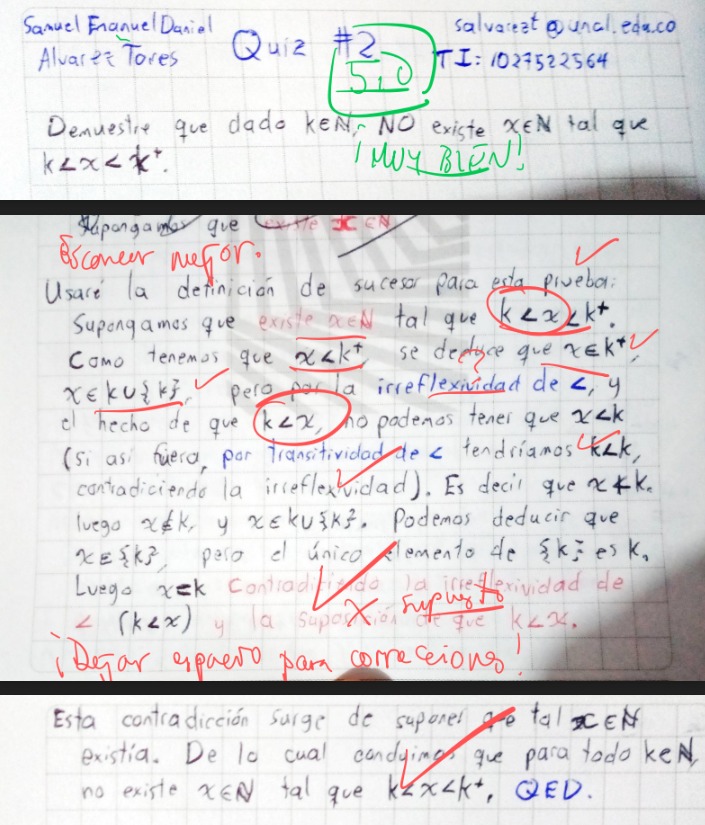 Samuel Emanuel Daniel
Alvarez Torres
Quiz #2
5,0
salvarezt@unal.edu.co
TI: 1027522564
Demuestre que dado k∈ℕ, NO existe x∈ℕ tal que
¡MUY BIEN!
k<x<k⁺.
Supongamos que existe x∈ℕ
Escanear mejor.
Usaré la definición de sucesor para esta prueba:
Supongamos que existe x∈ℕ tal que k<x<k⁺.
Como tenemos que x<k⁺, se deduce que x∈k⁺,
x∈k∪{k}, pero por la irreflexividad de <, y
el hecho de que k<x, no podemos tener que x<k
(si así fuera, por transitividad de < tendríamos k<k,
contradiciendo la irreflexividad). Es decir que x≮k.
luego x∉k, y x∈k∪{k}. Podemos deducir que
x∈{k}, pero el único elemento de {k} es k.
Luego x=k contradiciendo la irreflexividad de
< (k<x) y la suposición de que k<x.
supuesto
¡Dejar espacio para correcciones!
Esta contradicción surge de suponer que tal x∈ℕ
existía. De lo cual concluimos que para todo k∈ℕ,
no existe x∈ℕ tal que k<x<k⁺, QED.